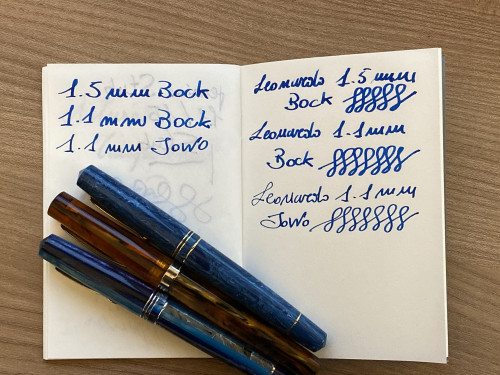 1.5 mm Bock
1.1 mm Bock
1.1 mm JoWo
Leonardo 1.5 mm
Bock
Leonardo 1.1 mm
Bock
Leonardo 1.1 mm
JoWo